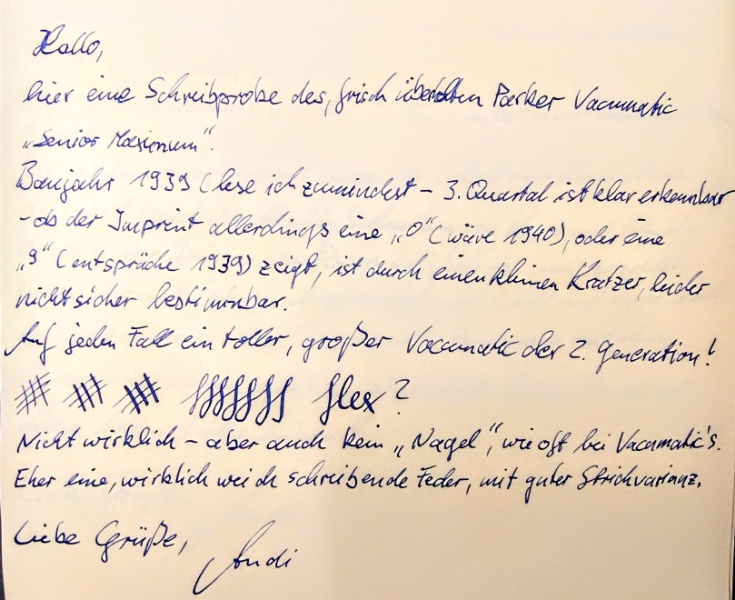 Hallo,
hier eine Schreibprobe des, frisch überholten Parker Vacumatic
„Senior Maximum“.
Baujahr 1939 (lese ich zumindest – 3. Quartal ist klar erkennbar
- ob der Imprint allerdings eine „0“ (wäre 1940), oder eine
„9“ (entspräche 1939) zeigt, ist durch einen kleinen Kratzer, leider
nicht sicher bestimmbar.
Auf jeden Fall ein toller, großer Vacumatic der 2. Generation!
flex?
Nicht wirklich – aber auch kein „Nagel“, wie oft bei Vacumatic's.
Eher eine, wirklich weich schreibende Feder, mit guter Strichvarianz.
Liebe Grüße,
Andi